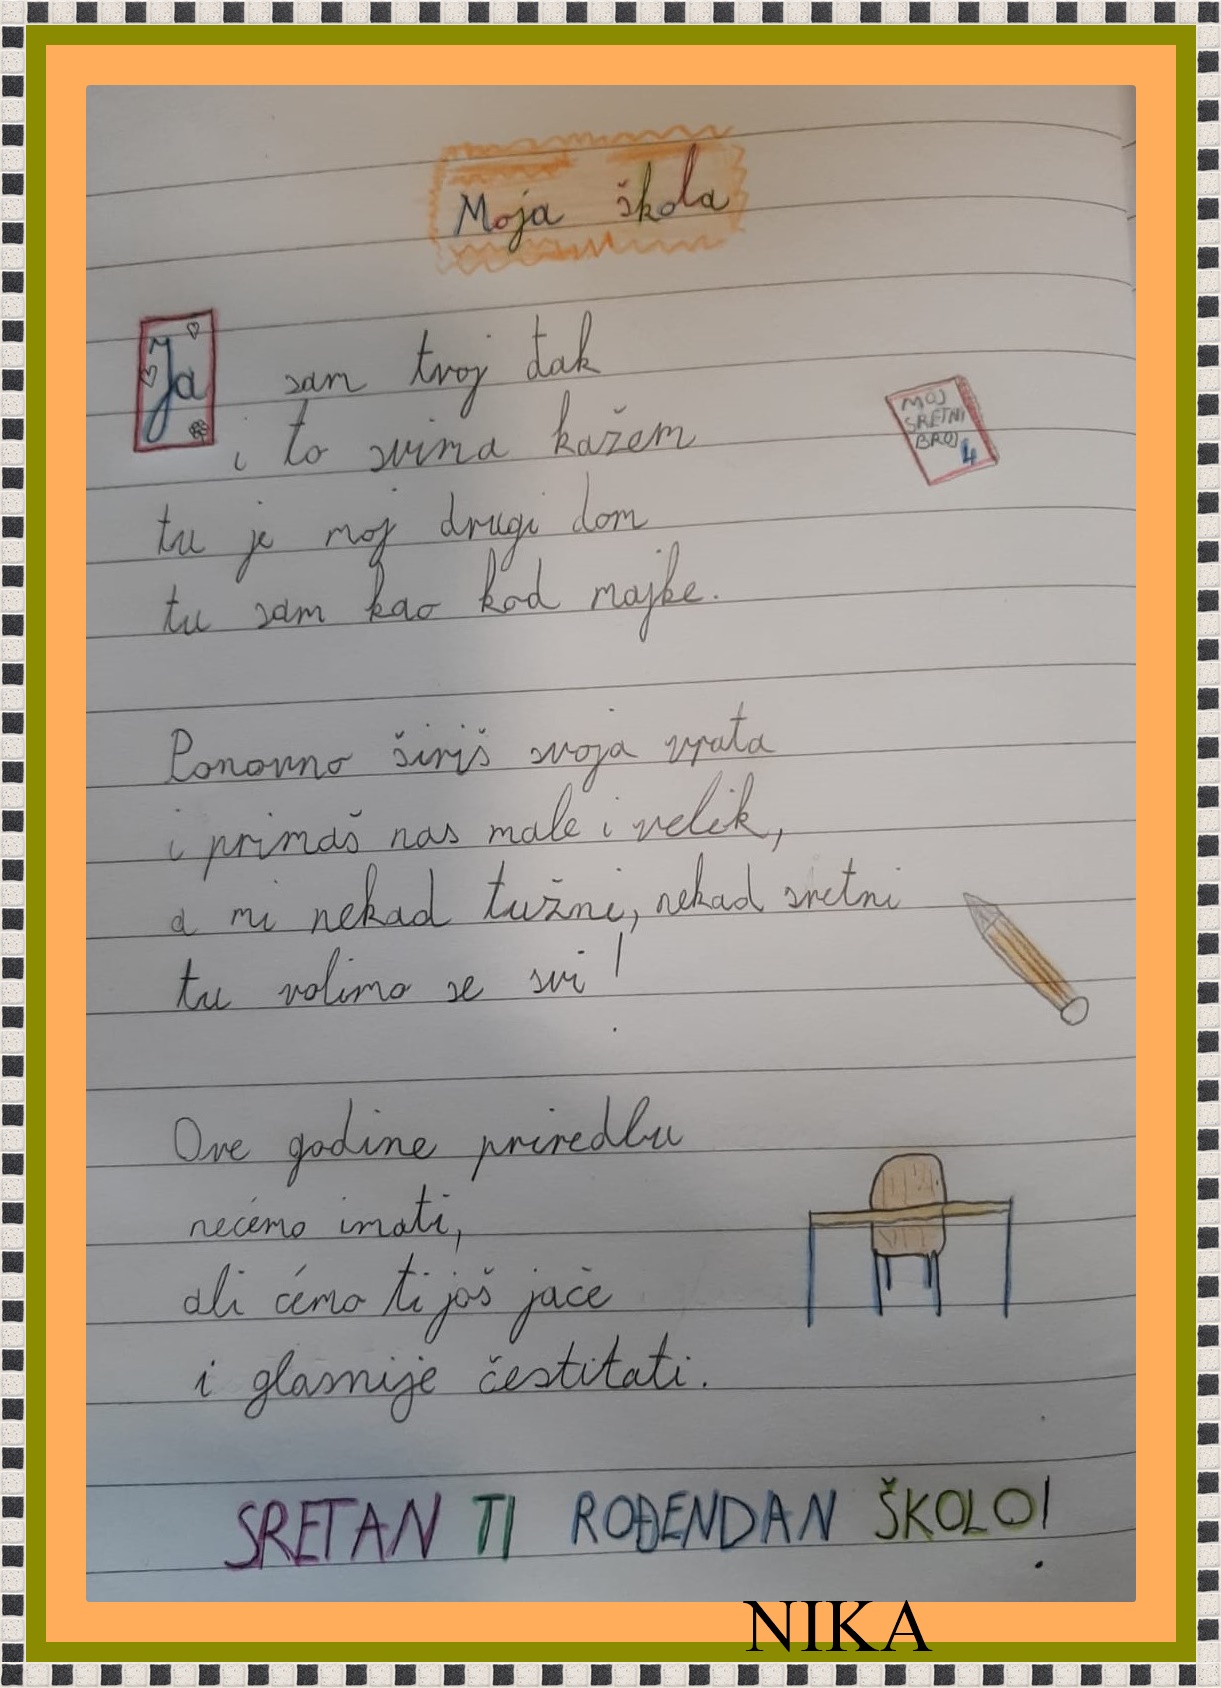 Moja škola
Ja sam tvoj đak
i to svima kažem
MOJ
SRETNI
BROJ
4
tu je moj drugi dom
tu sam kao kod majke.
Ponovno širiš svoja vrata
i primaš nas male i velik,
a mi nekad tužni, nekad sretni
tu volimo se svi!
Ove godine priredbu
nećemo imati,
ali ćemo ti još jače
i glasnije čestitati.
SRETAN TI ROĐENDAN ŠKOLO!
NIKA